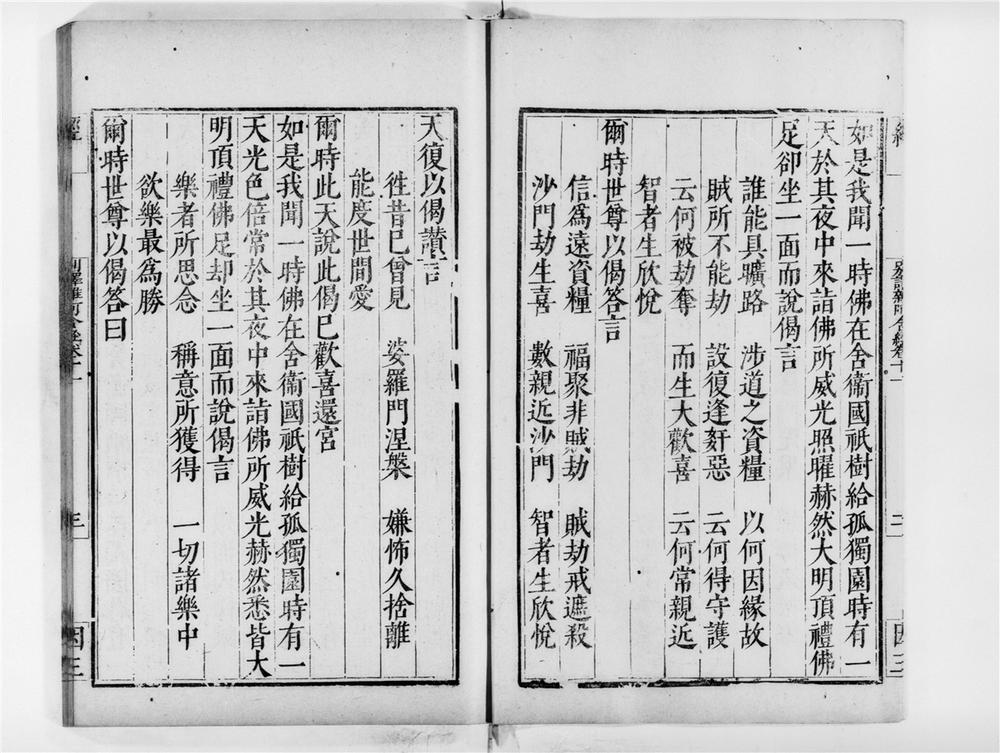 如是我聞一時佛在舍衛國祇樹給孤獨園時有一
天於其夜中來詣佛所威光照曜赫然大明頂禮佛
足卻坐一面而說偈言
誰能具曠路 涉道之資糧 以何因緣故
賊所不能劫 設復逢姧惡 云何得守護
云何被劫奪 而生大歡喜 云何常親近
智者生欣悅
爾時世尊以偈答言
信爲遠資糧 福聚非賊劫 賊劫戒遮殺
沙門劫生喜 數親近沙門 智者生欣悅
天復以偈讚言
徃昔已曾見 婆羅門涅槃 嫌怖久捨離
能度世間愛
爾時此天說此偈已歡喜還宮
如是我聞一時佛在舍衛國祇樹給孤獨園時有一
天光色倍常於其夜中來詣佛所威光赫然悉皆大
明頂禮佛足却坐一面而說偈言
樂者所思念 稱意所獲得 一切諸樂中
欲樂最爲勝
爾時世尊以偈答曰